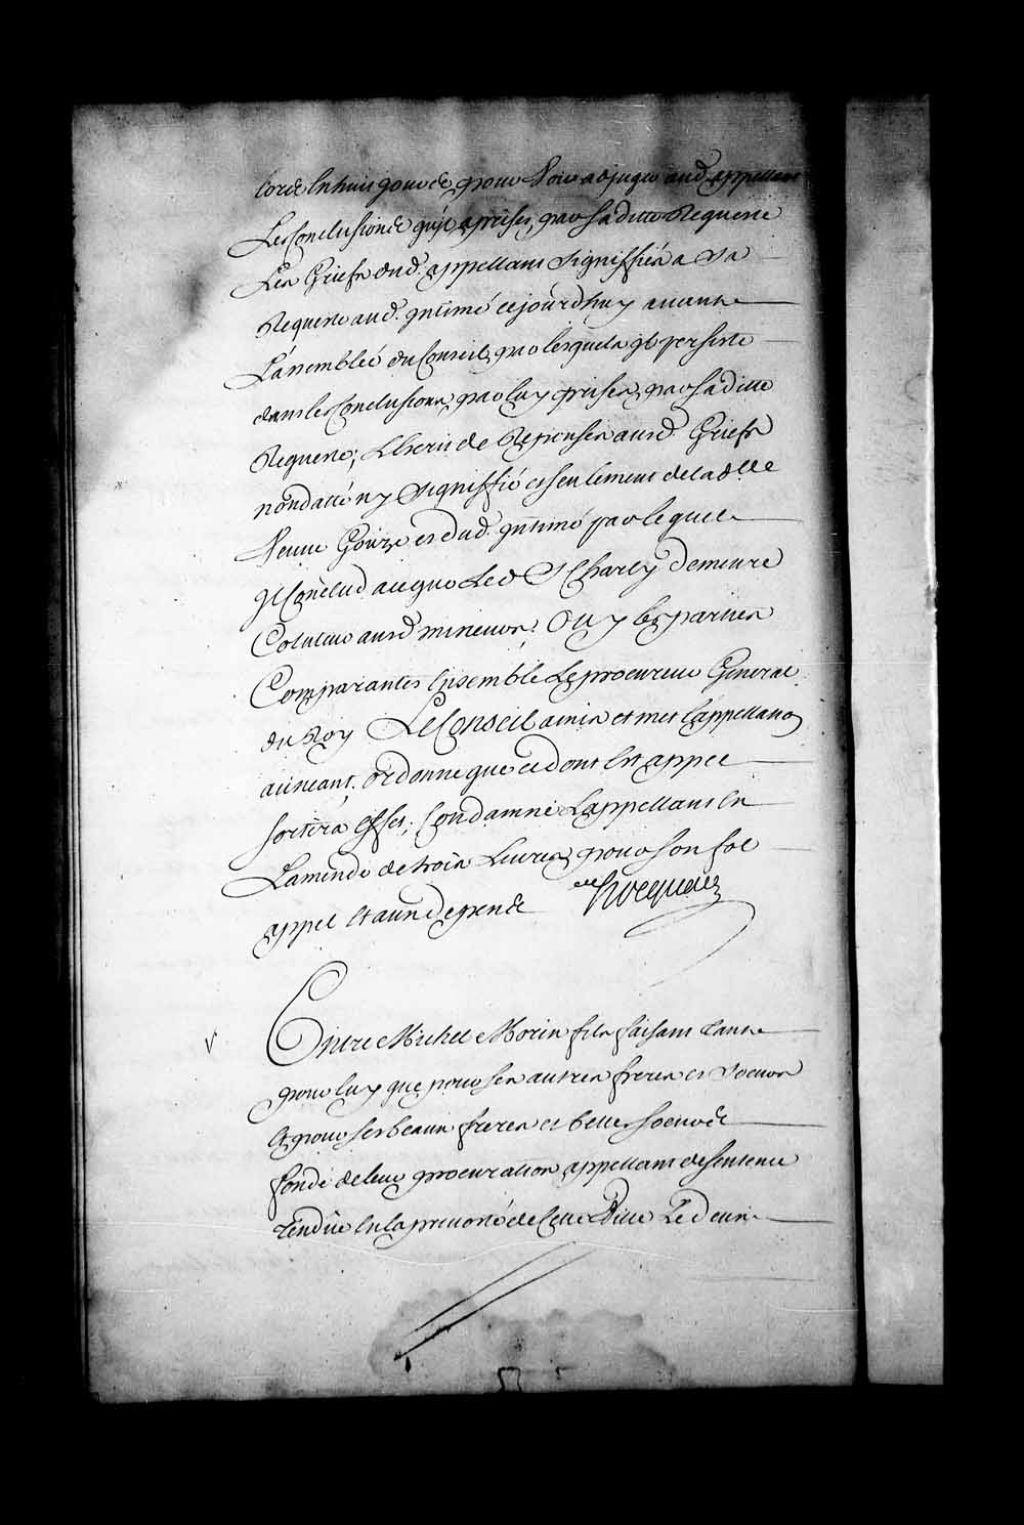 lors En huit jours, pour Voir adjuger aud. appellant
Les Conclusions qu'il a prises, par sa ditte Requeste
Les Griefs dud. appellant signiffiés a sa
Requeste aud. Intimé cejourd'huy avant
L'assemblée du Conseil, par lesquels il persiste
dans les Conclusions par luy prises par sa ditte
Requeste; L'Ecrit de Reponses ausd. Griefs
non datté ny signiffié et seulement de lad. De.lle
Veuve et dud. Intimé par lequel
Il Conclud a ce que Le S. Charly demeure
ausd. mineurs. Ouy les parties
Comparantes Ensemble Le procureur General
du Roy Le Conseil a mis et met l'appellation
au neant. ordonne que ce dont Est appel
sortira Effet; Condamne L'appellant En
L'amende de trois Livres, pour son fol
appel Et aux depens
Hocquart
Entre Michel Morin fils faisant tant
pour luy que pour ses autres freres et soeurs
Et pour ses beaux freres et belles soeurs
fondé de leur procuration, appellant de sentence
rendüe En la prevosté de Cette Ville Le deux